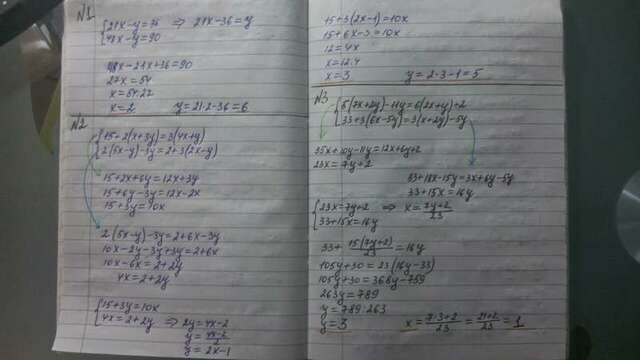 №1
{21x-y=36 ⇒ 21x-36=y
{48x-y=90
48x-21x+36=90
27x=54
x=54:27
x=2 y=21·2-36=6
№2
{15+2(x+3y)=3(4x+y)
{2(5x-y)-3y=2+3(2x-y)
15+2x+6y=12x+3y
15+6y-3y=12x-2x
15+3y=10x
2(5x-y)-3y=2+6x-3y
10x-2y-3y+3y=2+6x
10x-6x=2+2y
4x=2+2y
{15+3y=10x
{4x=2+2y ⇒ 2y=4x-2
y=4x-2/2
y=2x-1
15+3(2x-1)=10x
15+6x-3=10x
12=4x
x=12:4
x=3 y=2·3-1=5
№3
{5(7x+2y)-11y=6(2x+y)+2
{33+3(6x-5y)=3(x+2y)-5y
35x+10y-11y=12x+6y+2
23x=7y+2
33+18x-15y=3x+6y-5y
33+15x=16y
{23x=7y+2 ⇒ x=7y+2/23
{33+15x=16y
33+15(7y+2)/23=16y
105y+30=23(16y-33)
105y+30=368y-759
263y=789
y=789:263
y=3 x=7·3+2/23=21+2/23=1